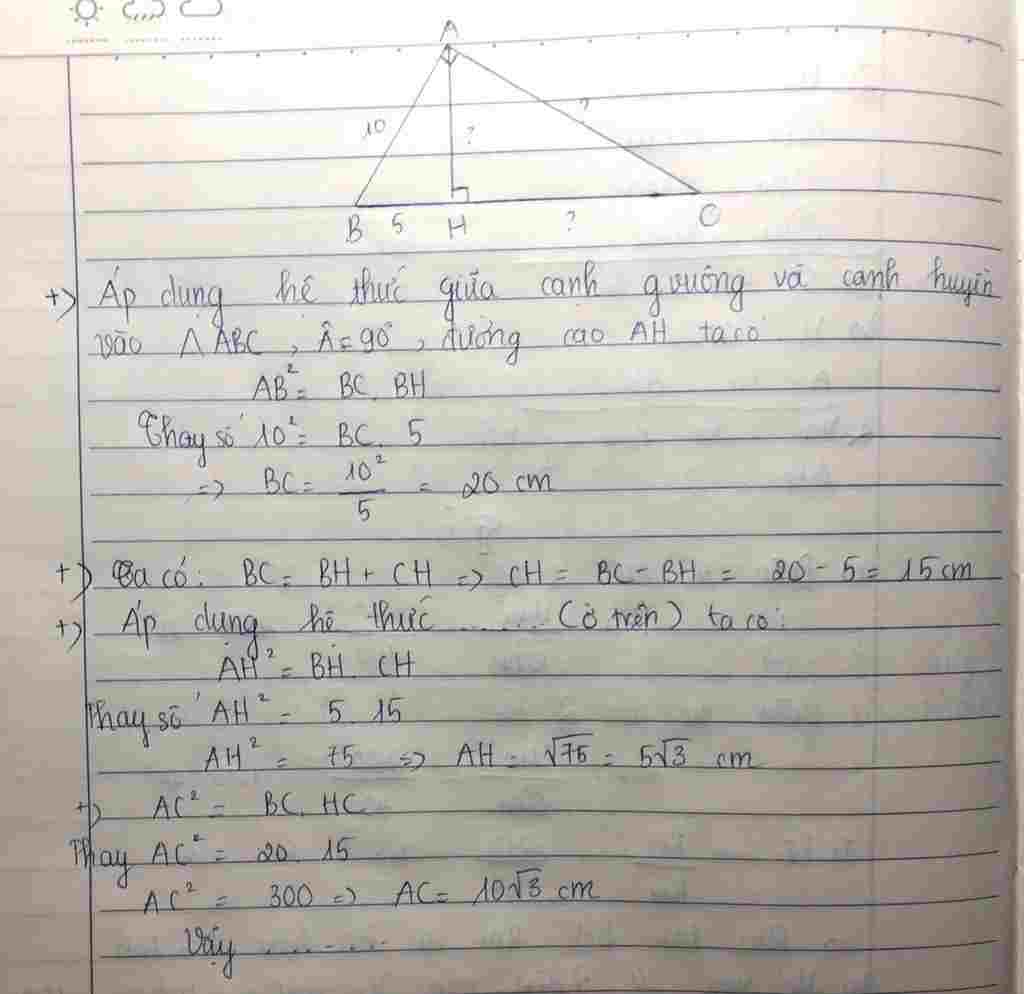 A
10
?
?
B 5 H ? C
+) Áp dụng hệ thức giữa cạnh g vuông và cạnh huyền
vào △ ABC, Â = 90°, đường cao AH ta có
AB² = BC. BH
Thay số 10² = BC. 5
=> BC = 10²/5 = 20 cm
+) Ta có: BC = BH + CH => CH = BC - BH = 20 - 5 = 15 cm
+) Áp dụng hệ thức ...... (ở trên) ta có:
AH² = BH. CH
Thay số AH² = 5. 15
AH² = 75 => AH = √75 = 5√3 cm
+) AC² = BC. HC
Thay AC² = 20. 15
AC² = 300 => AC = 10√3 cm
Vậy ..........